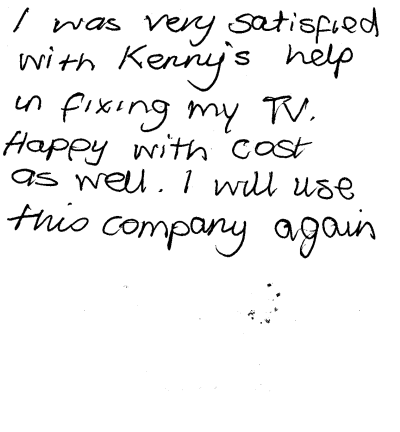 I was very satisfied
with Kenny's help
in fixing my TV.
Happy with cost
as well. I will use
this company again